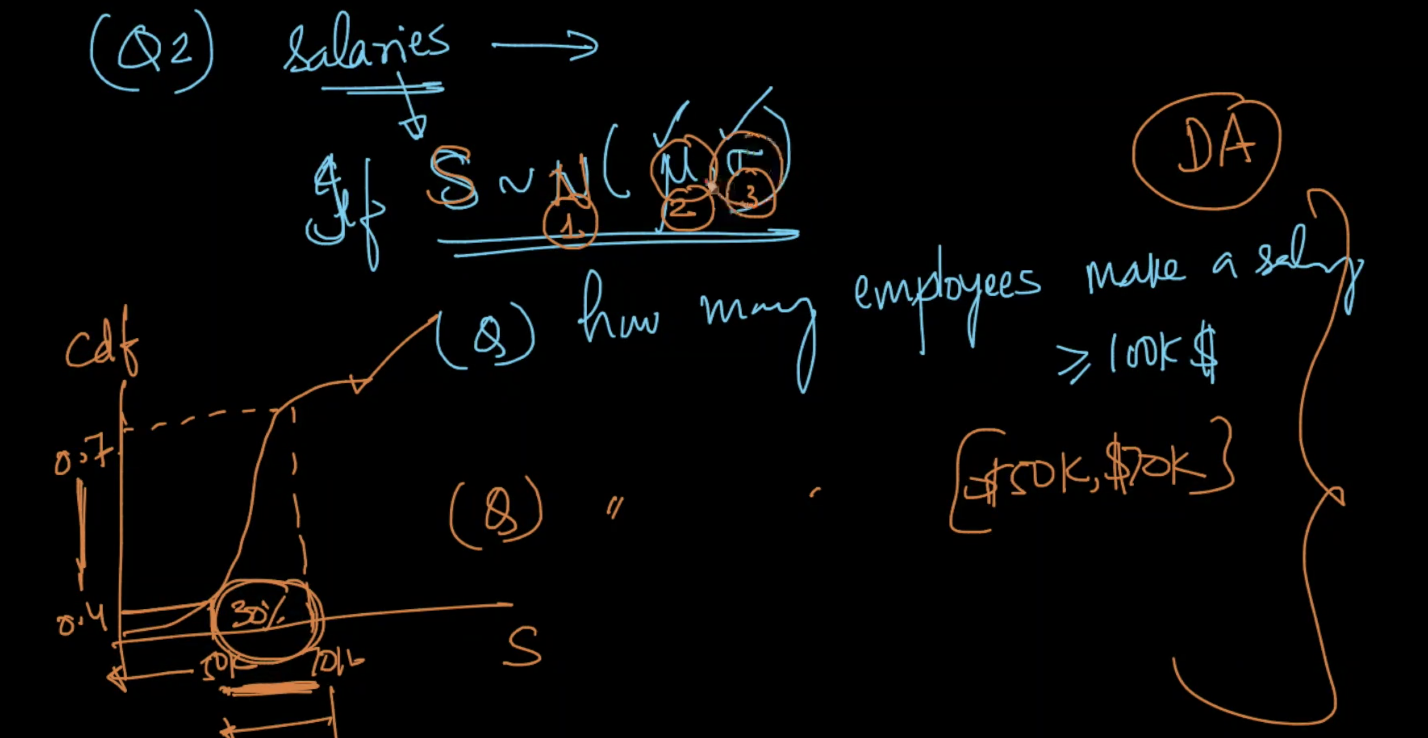 (Q2) salaries →
DA
If S ~ N(μ, σ)
1 2 3
(Q) how many employees make a salary
≥ 100K $
cdf
0.7
(Q) " [$50K, $70K]
0.4
30%
50K 70K
S